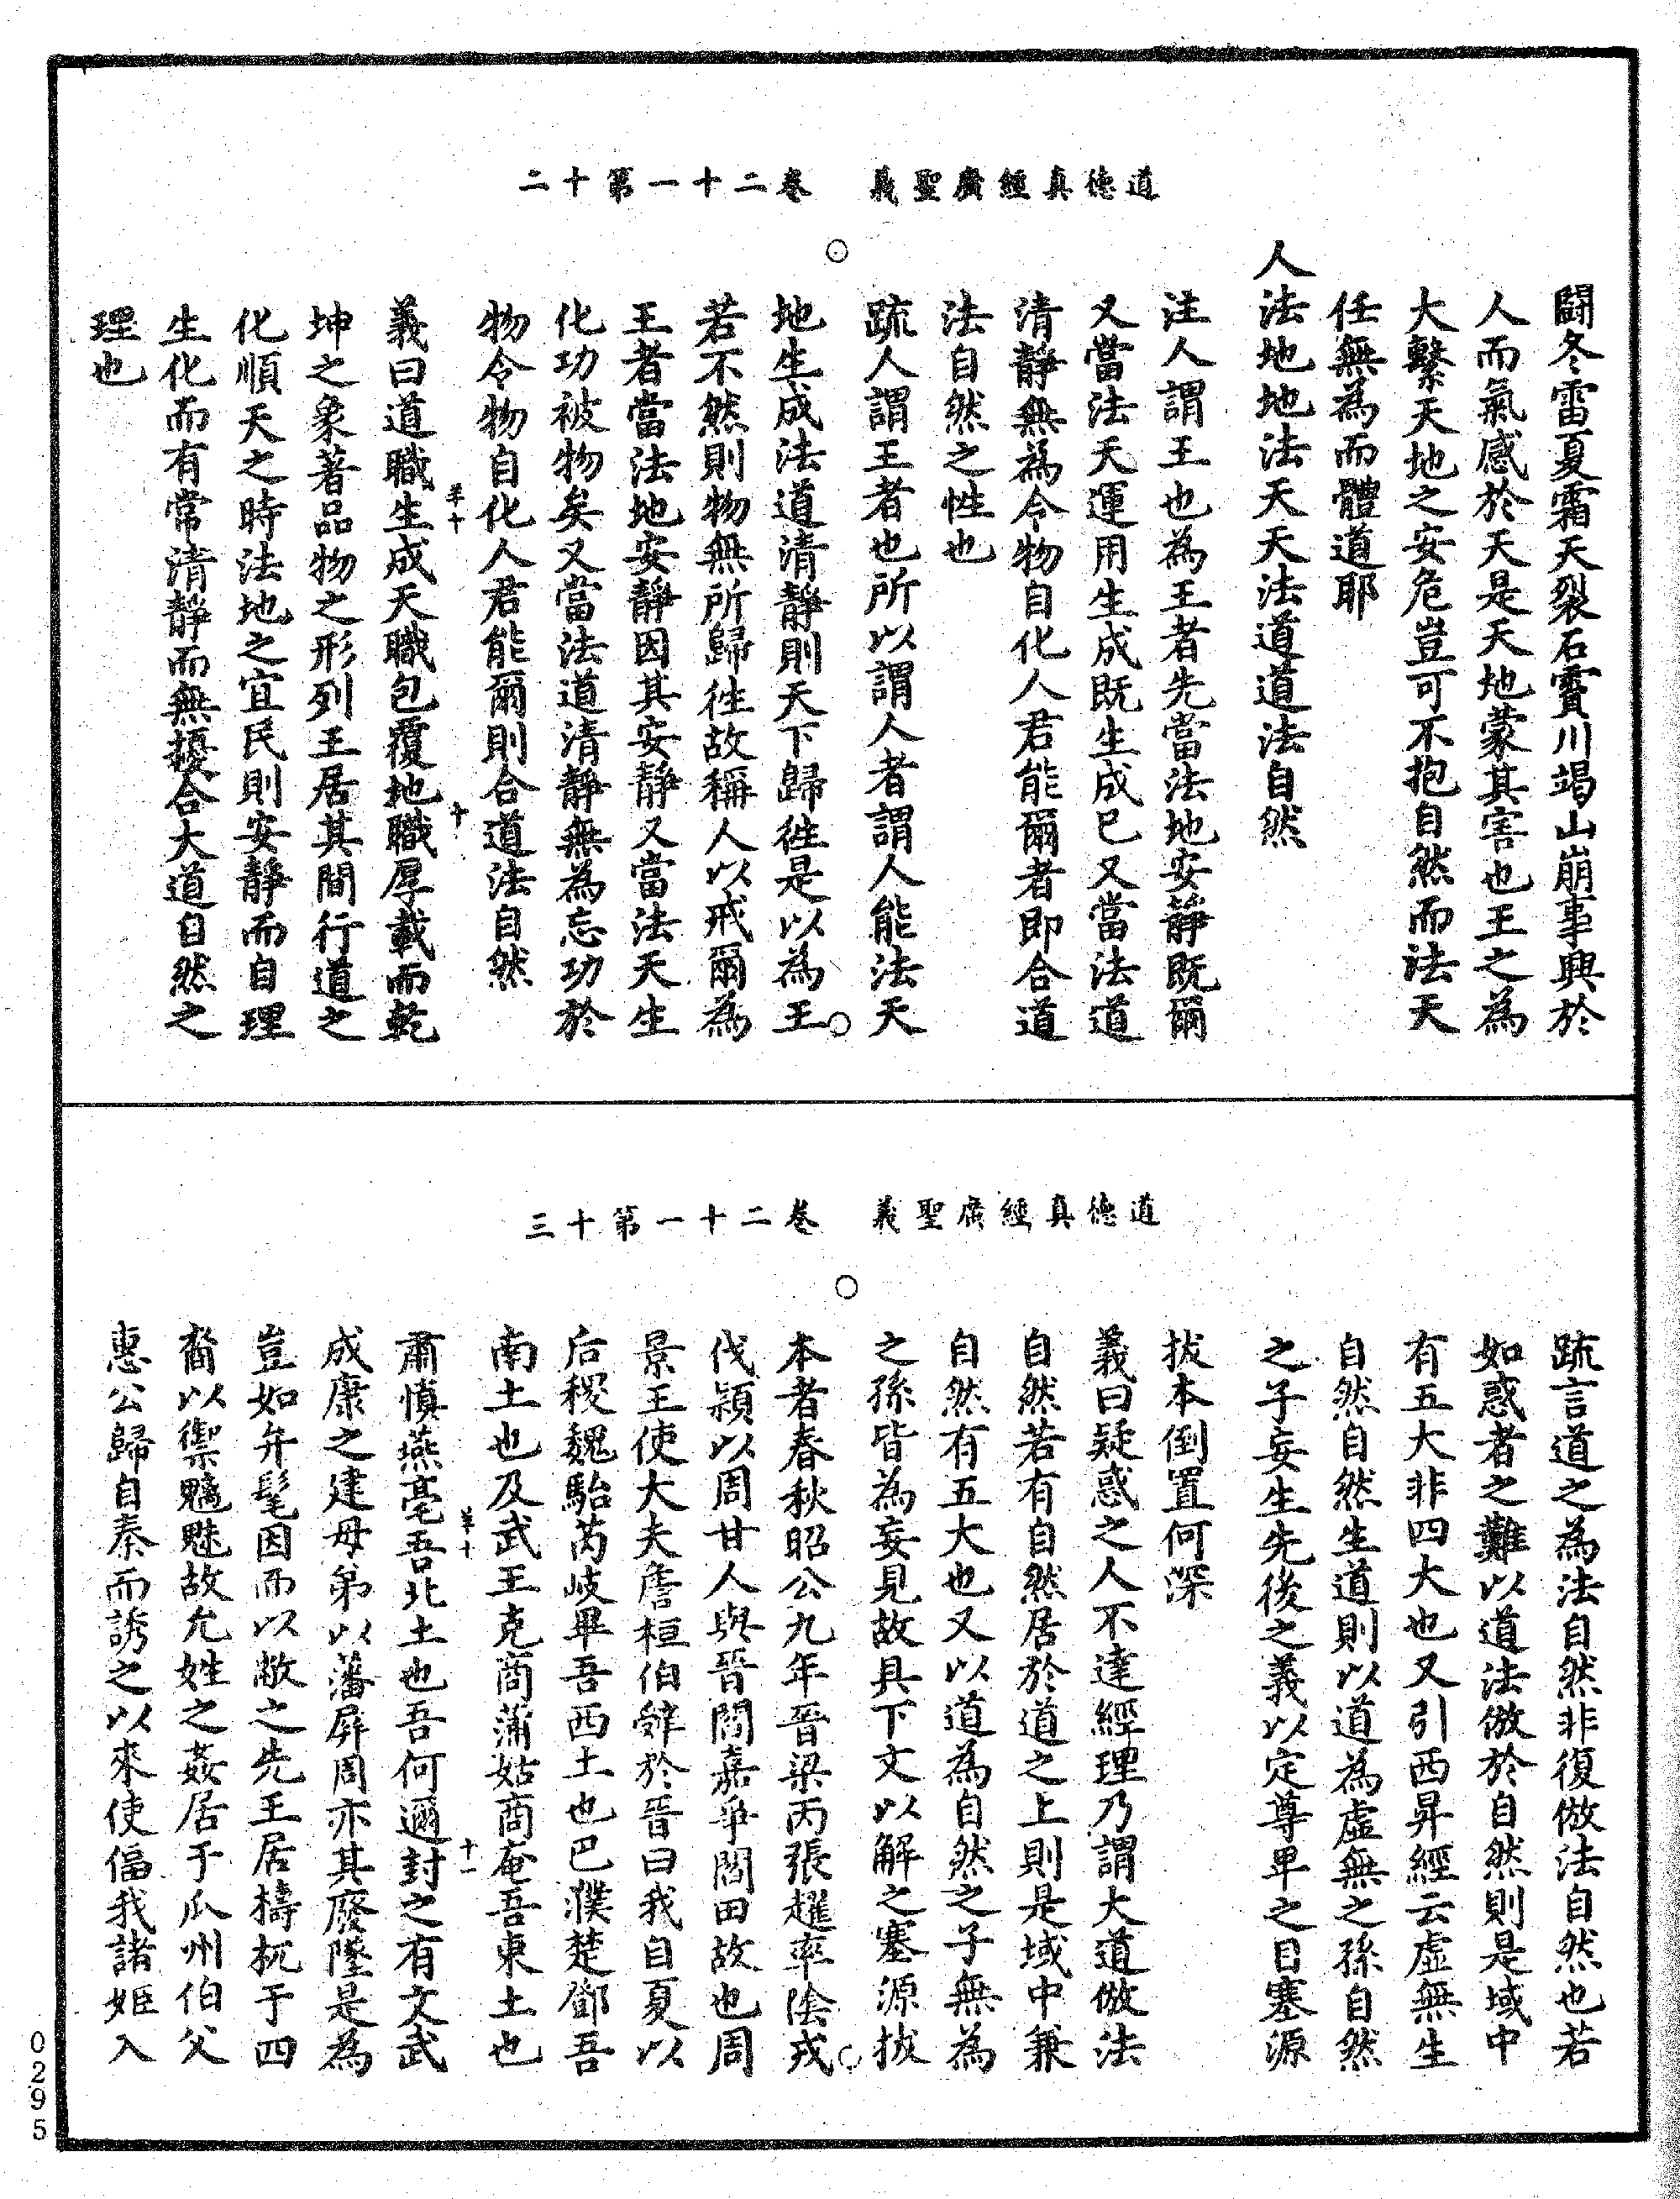 道德真經廣聖義　卷二十一第十二
鬬冬雷夏霜天裂石賈川竭山崩事興於
人而氣感於天是天地蒙其害也王之為
大繫天地之安危豈可不抱自然而法天
任無為而體道耶
人法地地法天天法道道法自然
注人謂王也為王者先當法地安靜既爾
又當法天運用生成既生成已又當法道
清靜無為令物自化人君能爾者即合道
法自然之性也
疏人謂王者也所以謂人者謂人能法天
地生成法道清靜則天下歸徃是以為王
若不然則物無所歸徃故稱人以戒爾為
王者當法地安靜因其安靜又當法天生
化功被物矣又當法道清靜無為忘功於
物令物自化人君能爾則合道法自然
義曰道職生成天職包覆地職厚載而乾
坤之象著品物之形列王居其間行道之
化順天之時法地之宜民則安靜而自理
生化而有常清靜而無擾合大道自然之
理也
道德真經廣聖義　卷二十一第十三
疏言道之為法自然非復倣法自然也若
如惑者之難以道法倣於自然則是域中
有五大非四大也又引西昇經云虛無生
自然自然生道則以道為虛無之孫自然
之子妄生先後之義以定尊卑之目塞源
拔本倒置何深
義曰疑惑之人不達經理乃謂大道倣法
自然若有自然居於道之上則是域中兼
自然有五大也又以道為自然之子無為
之孫皆為妄見故具下文以解之塞源拔
本者春秋昭公九年晉梁丙張趯率陰戎
伐潁以周甘人與晉閻嘉爭閻田故也周
景王使大夫詹桓伯辭於晉曰我自夏以
后稷魏駘芮岐畢吾西土也巴濮楚鄧吾
南土也及武王克商蒲姑商奄吾東土也
肅慎燕亳吾北土也吾何邇封之有文武
成康之建母弟以藩屏周亦其廢墜是為
豈如弁髦因而以敝之先王居檮杌于四
裔以禦魑魅故允姓之姦居于瓜州伯父
惠公歸自秦而誘之以來使偪我諸姬入
0295